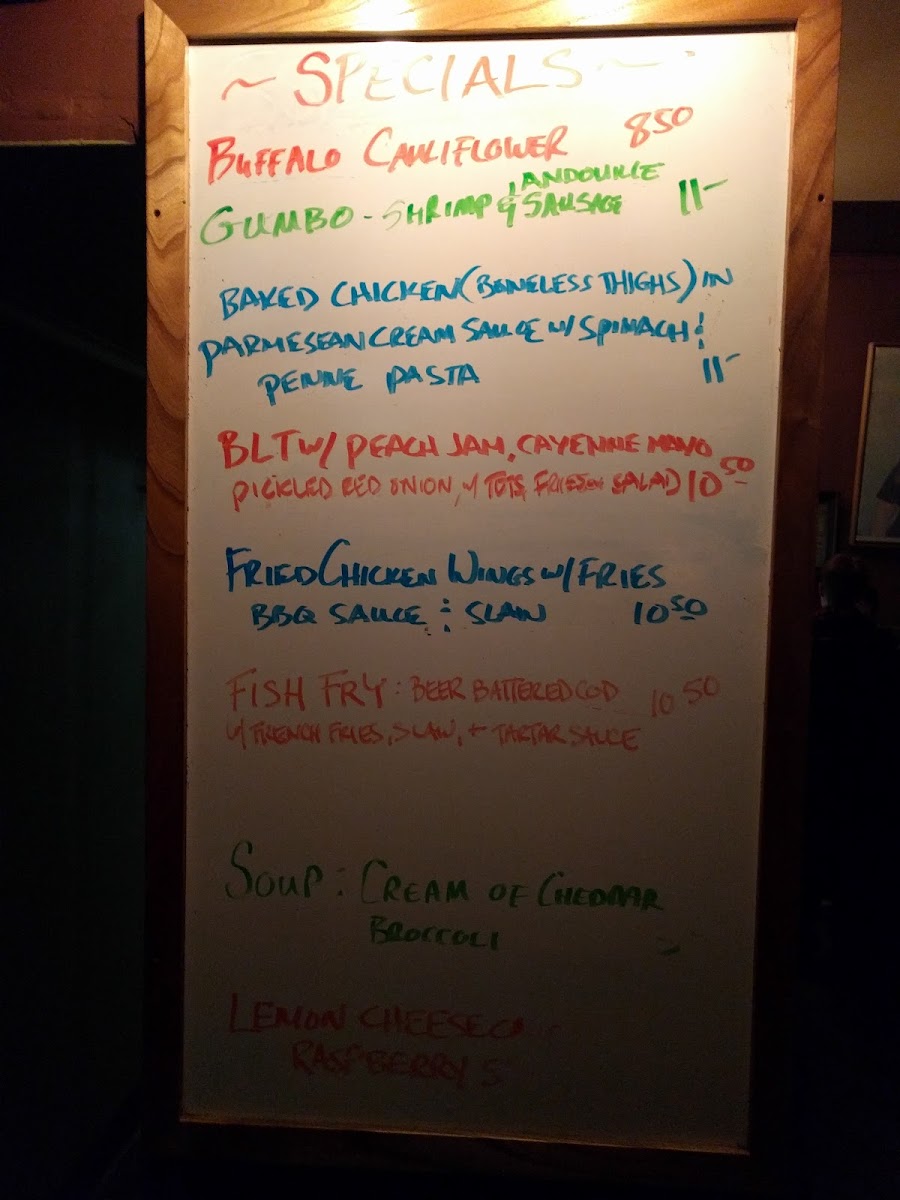 ~ SPECIALS ~
BUFFALO CAULIFLOWER 8 50
GUMBO - SHRIMP & ANDOUILLE SAUSAGE 11-
BAKED CHICKEN (BONELESS THIGHS) IN
PARMESEAN CREAM SAUCE W/ SPINACH &
PENNE PASTA 11-
BLT W/ PEACH JAM, CAYENNE MAYO
PICKLED RED ONION, W/ TOTS, FRIES OR SALAD 10 50
FRIED CHICKEN WINGS W/ FRIES
BBQ SAUCE & SLAW 10 50
FISH FRY: BEER BATTERED COD 10 50
W/ FRENCH FRIES, SLAW, + TARTAR SAUCE
SOUP: CREAM OF CHEDDAR
BROCCOLI
LEMON CHEESECA
RASPBERRY S